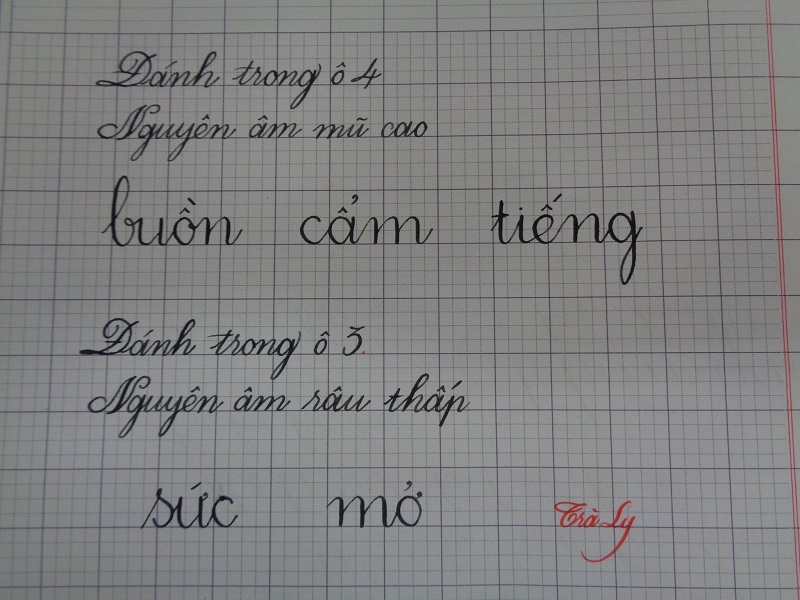 Đánh trong ô 4
Nguyên âm mũ cao
buồn cẩm tiếng
Đánh trong ô 3
Nguyên âm râu thấp
sức mở
Trà Ly